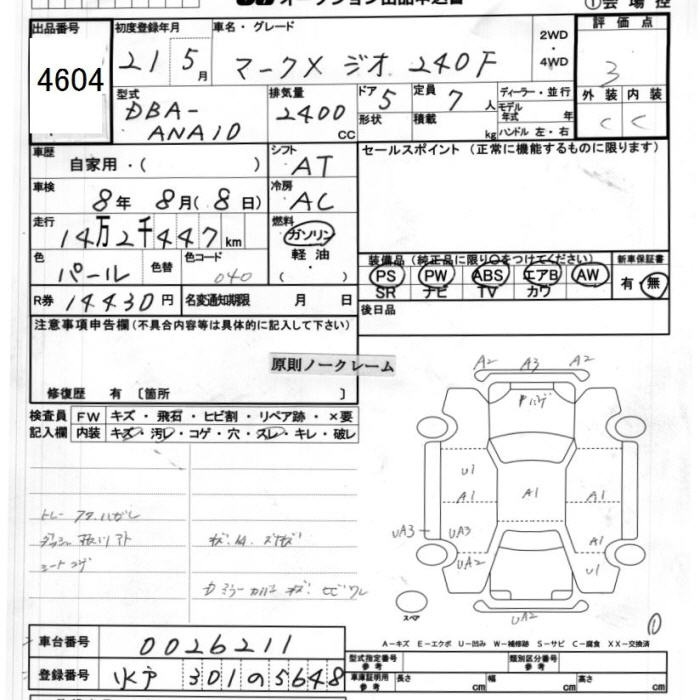 オークション出品申込書
①会場控
出品番号 初度登録年月 車名・グレード 2WD・4WD 評価点
4604 21 5月 マークX ジオ 240F 3
型式 排気量 ドア 5 定員 7人 ディーラー・並行 外装 内装
DBA-ANA10 2400cc 形状 積載 kg モデル年式 年 C C
ハンドル 左・右
車歴 シフト セールスポイント (正常に機能するものに限ります)
自家用・( ) AT
車検 冷房
8年 8月(8日) AC
走行 燃料
14万2千447km ガソリン
軽油
( )
色 パール 色替 色コード 040
装備品(純正品に限り○をつけてください) 新車保証書
PS PW ABS エアB AW 有・無
SR ナビ TV カワ
R券 14430円 名変通知期限 月 日 後日品
注意事項申告欄(不具合内容等は具体的に記入して下さい)
原則ノークレーム
修復歴 有 〔箇所 〕
検査員 FW キズ・飛石・ヒビ割・リペア跡・×要
記入欄 内装 キズ・汚レ・コゲ・穴・スレ・キレ・破レ
A2 A3 A2
U1 A1
A1 A1
UA3 UA3 A1
UA2 U1
UA2
スペア
①
シートコゲ
A-キズ E-エクボ U-凹み W-補修跡 S-サビ C-腐食 XX-交換済
車台番号 0026211
登録番号 水戸 301の5648
型式指定番号 参考 類別区分番号 参考
車庫証明用 参考 長さ cm 幅 cm 高さ cm